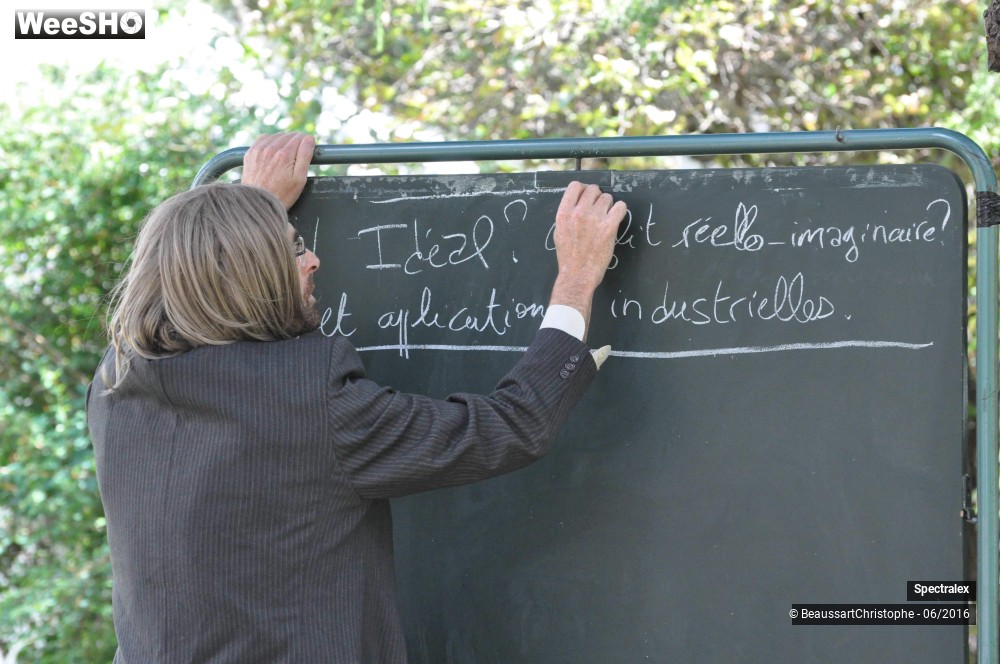 WeeSHO
Idéal? réello-imaginaire?
et applications industrielles.
Spectralex
© BeaussartChristophe - 06/2016